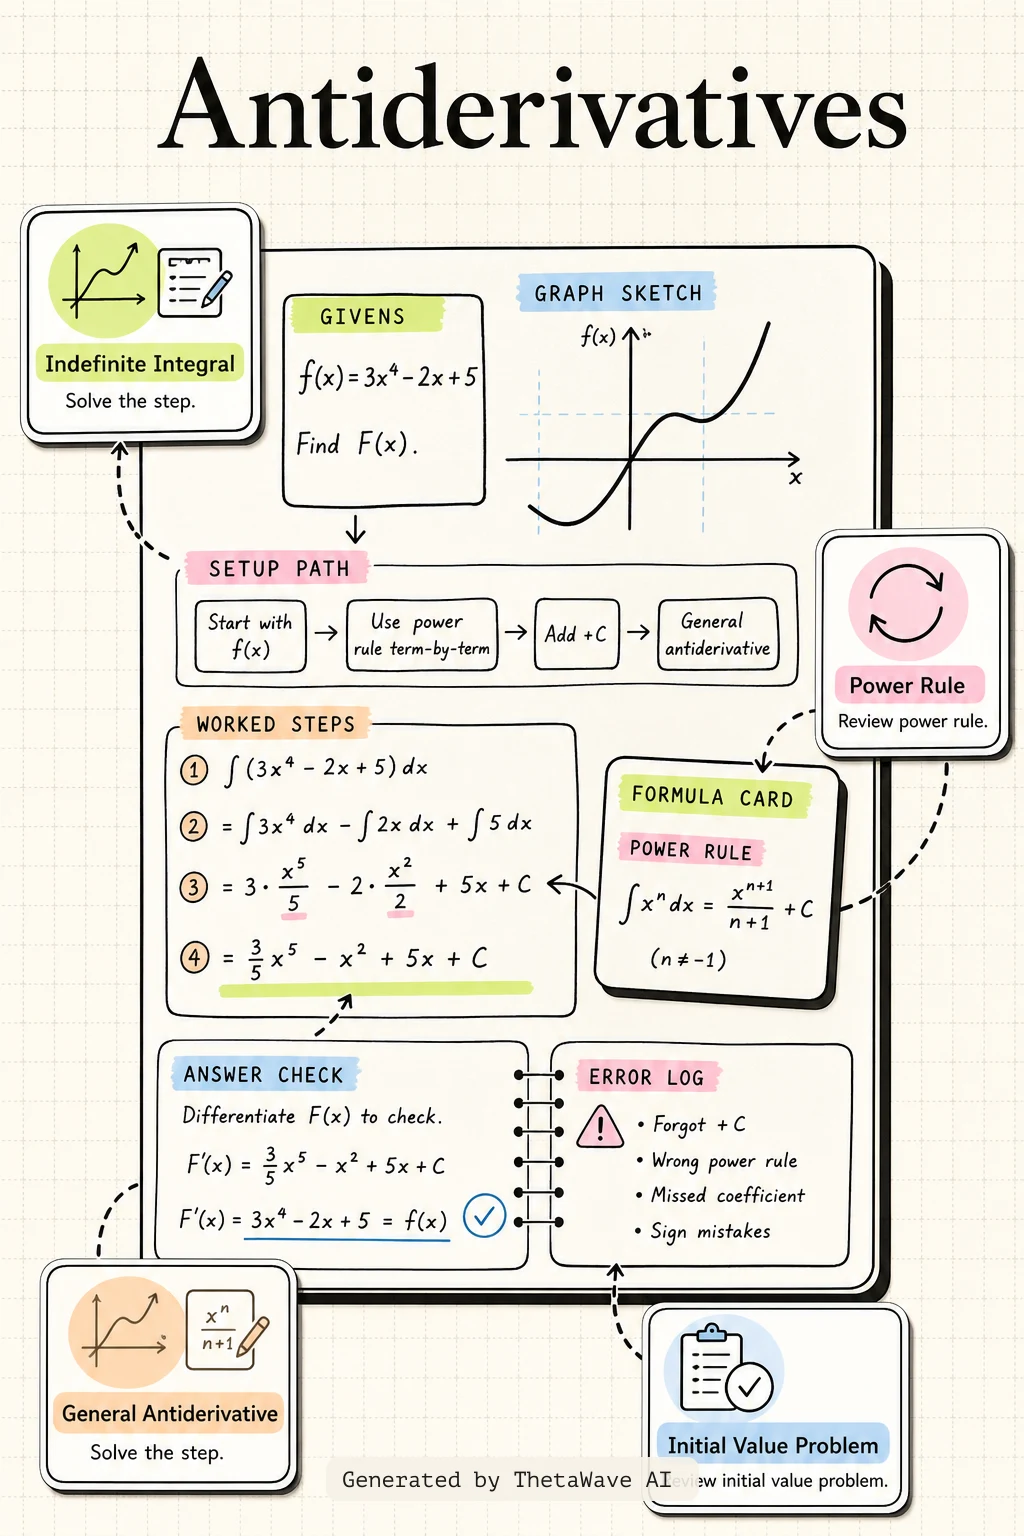 Antiderivatives
Indefinite Integral
Solve the step.
GIVENS
f(x) = 3x⁴ - 2x + 5
Find F(x).
GRAPH SKETCH
f(x)
x
SETUP PATH
Start with
f(x)
Use power
rule term-by-term
Add +C
General
antiderivative
Power Rule
Review power rule.
WORKED STEPS
1 ∫(3x⁴ - 2x + 5) dx
2 = ∫3x⁴ dx - ∫2x dx + ∫5 dx
3 = 3 · x⁵/5 - 2 · x²/2 + 5x + C
4 = 3/5 x⁵ - x² + 5x + C
FORMULA CARD
POWER RULE
∫xⁿ dx = xⁿ⁺¹/n+1 + C
(n ≠ -1)
ANSWER CHECK
Differentiate F(x) to check.
F'(x) = 3/5 x⁵ - x² + 5x + C
F'(x) = 3x⁴ - 2x + 5 = f(x)
ERROR LOG
• Forgot + C
• Wrong power rule
• Missed coefficient
• Sign mistakes
xⁿ/n+1
General Antiderivative
Solve the step.
Initial Value Problem
initial value problem.
Generated by ThetaWave AI